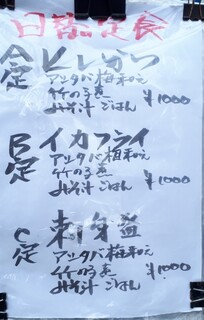 日替定食
A定 ヒレかつ
アシタバ梅和え
竹の子煮
みそ汁 ごはん ¥1000
B定 イカフライ
アシタバ梅和え
竹の子煮
みそ汁 ごはん ¥1000
C定 刺身盛
アシタバ梅和え
竹の子煮
みそ汁 ごはん ¥1000